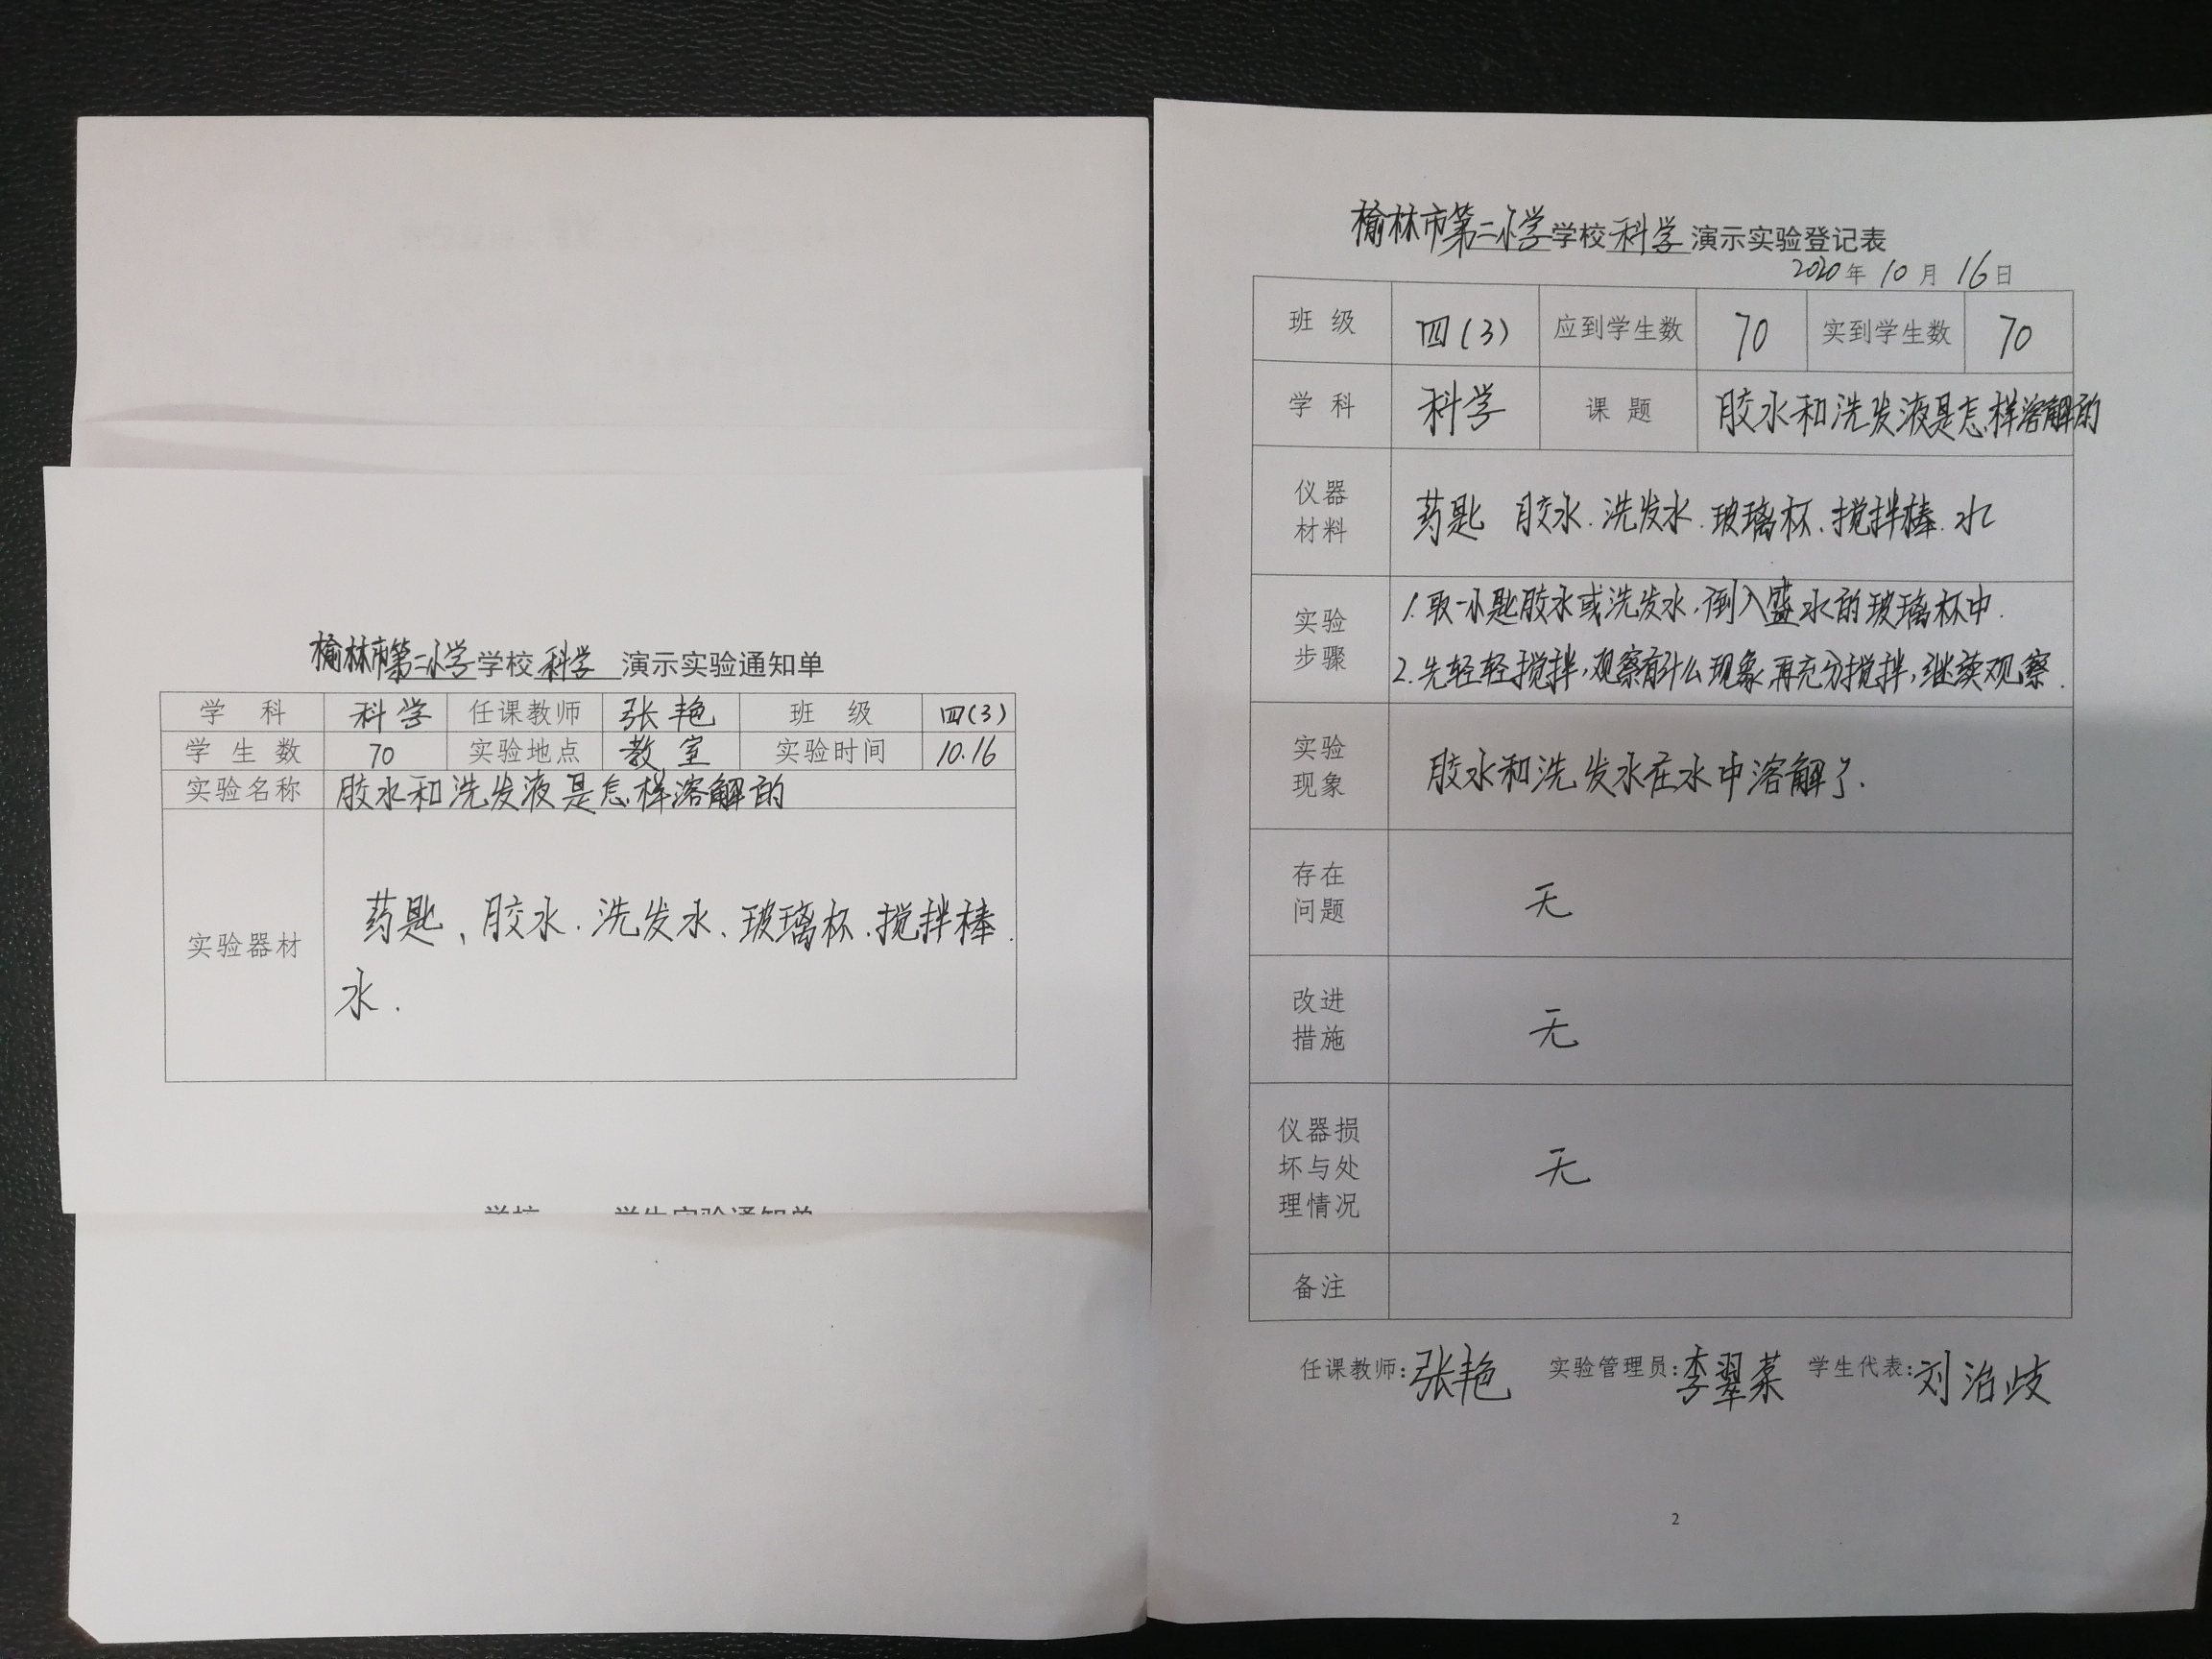 榆林市第二小学学校 科学 演示实验通知单
学 科 科学 任课教师 张艳 班 级 四(3)
学生数 70 实验地点 教室 实验时间 10.16
实验名称 胶水和洗发液是怎样溶解的
实验器材 药匙、胶水.洗发水、玻璃杯.搅拌棒.
水.
学校 学生实验通知单
榆林市第二小学学校 科学 演示实验登记表
2020年10月16日
班 级 四(3) 应到学生数 70 实到学生数 70
学 科 科学 课 题 胶水和洗发液是怎样溶解的
仪器
材料
药匙 胶水.洗发水.玻璃杯.搅拌棒.水
实验
步骤
1.取一小匙胶水或洗发水,倒入盛水的玻璃杯中.
2.先轻轻搅拌,观察有什么现象,再充分搅拌,继续观察.
实验
现象
胶水和洗发水在水中溶解了.
存在
问题
无
改进
措施
无
仪器损
坏与处
理情况
无
备注
任课教师:张艳 实验管理员:李翠莱 学生代表:刘治歧
2